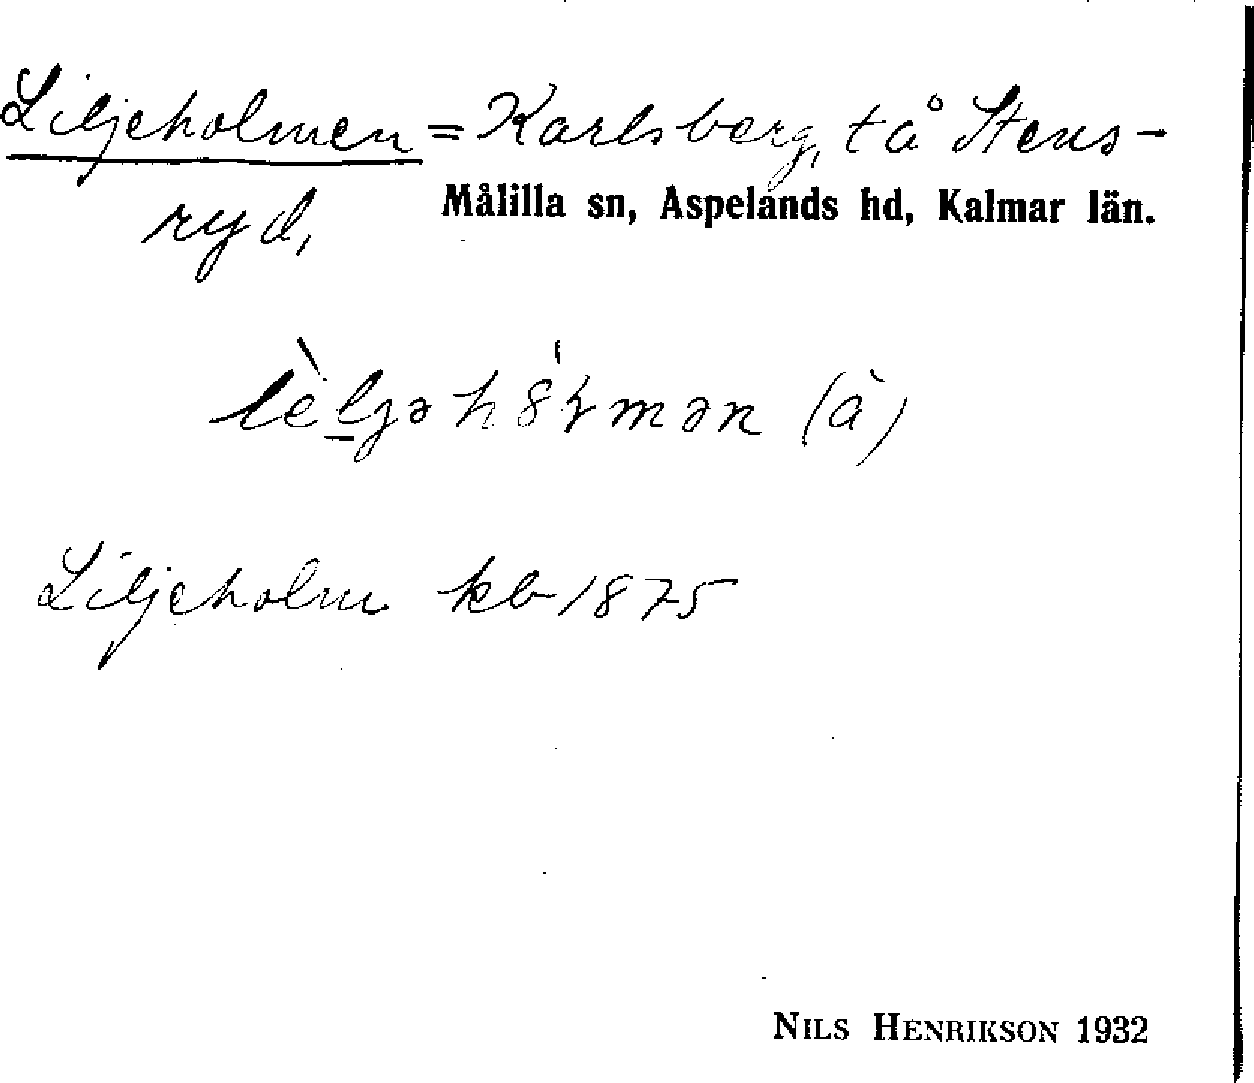 Liljeholmen = Karlsberg, tå Stens-
ryd,
Målilla sn, Aspelands hd, Kalmar län.
(å)
Liljeholm kb 1875
NILS HENRIKSON 1932